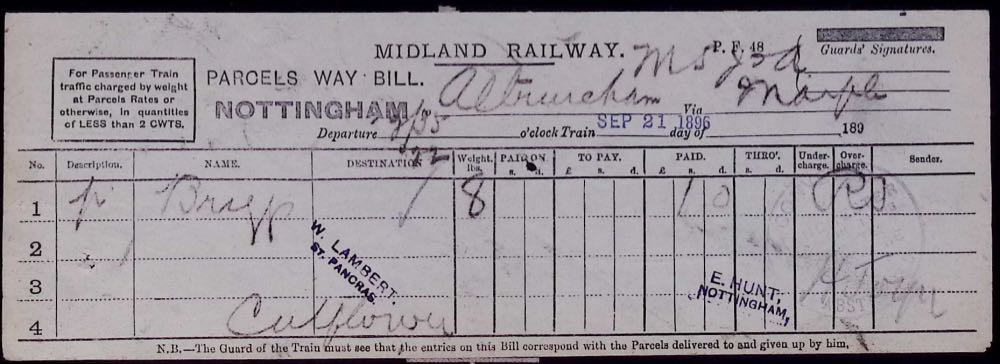 MIDLAND RAILWAY.
P. F. 48
Guards' Signatures.
For Passenger Train
traffic charged by weight
at Parcels Rates or
otherwise, in quantities
of LESS than 2 CWTS.
PARCELS WAY BILL.
NOTTINGHAM to Altrincham Via Marple
Departure 7/35 o'clock Train SEP 21 1896 day of 189
No. Description. NAME. DESTINATION Weight. lbs. PAID ON. TO PAY. PAID. THRO'. Under-charge. Over-charge. Sender.
s. d. £ s. d. £ s. d. s. d.
1 p 8
2
W. LAMBERT,
ST. PANCRAS.
3
E. HUNT,
NOTTINGHAM,
4 Cutflower
N.B.—The Guard of the Train must see that the entries on this Bill correspond with the Parcels delivered to and given up by him.